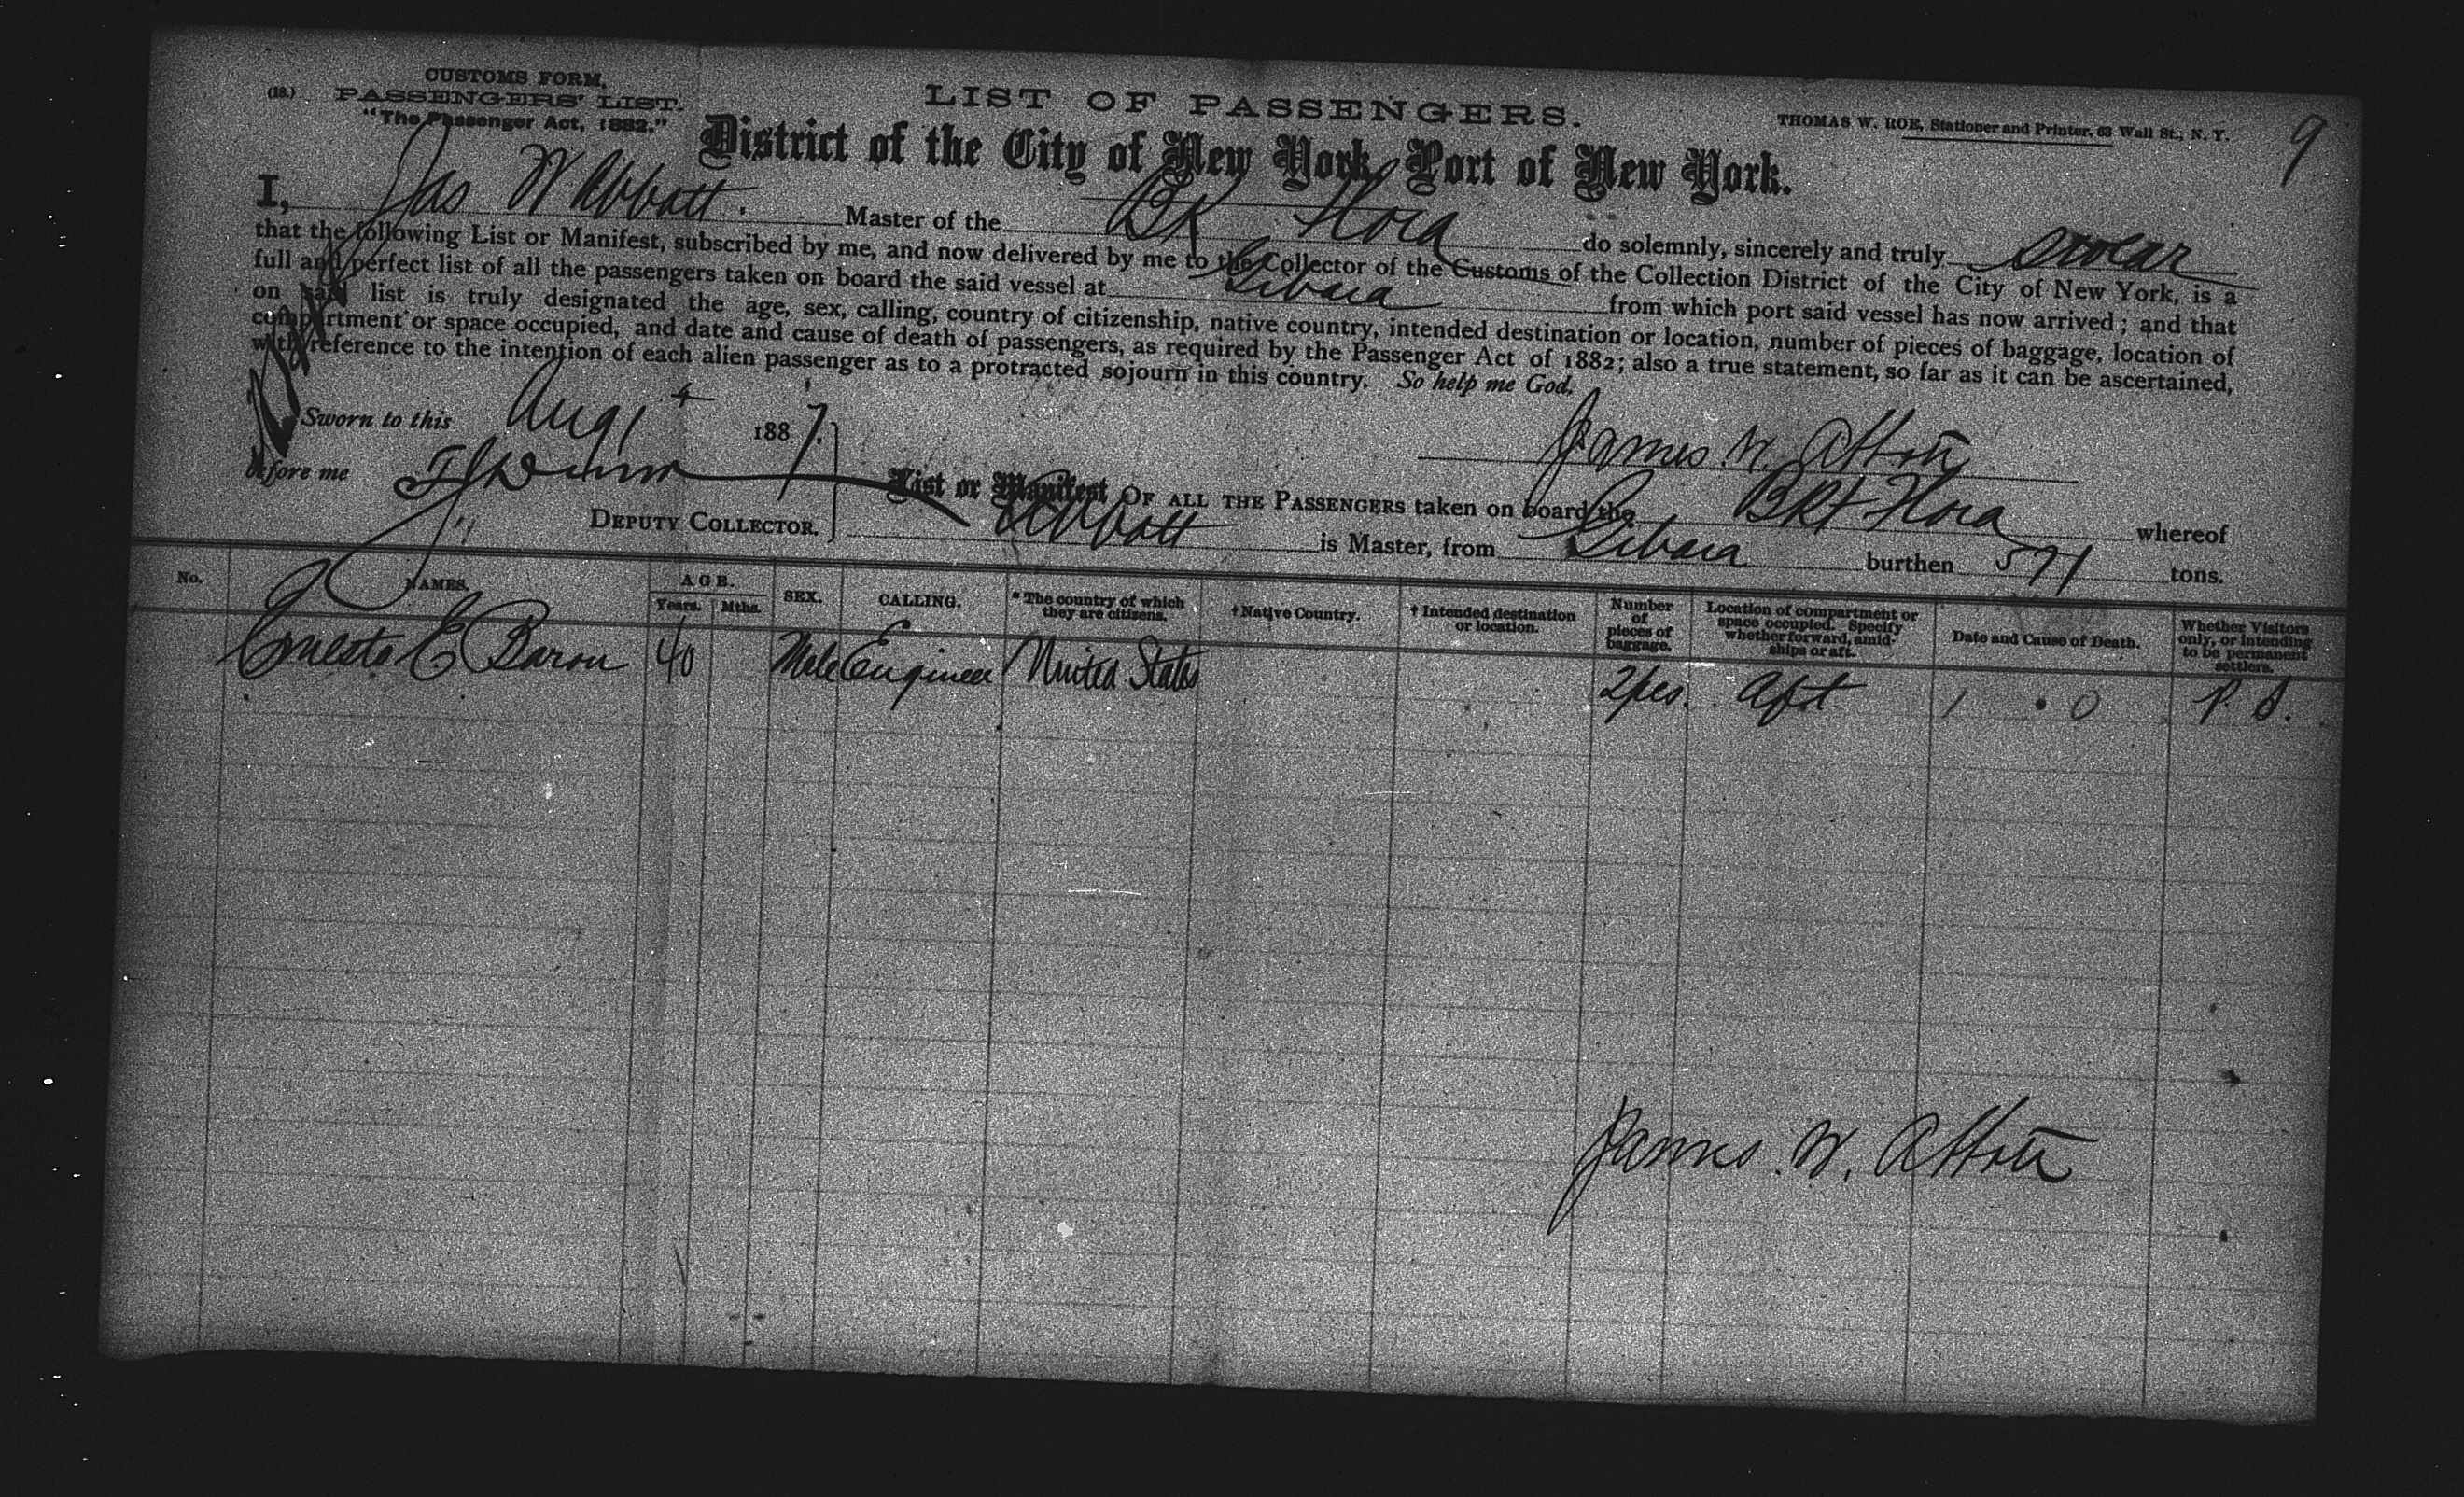 CUSTOMS FORM,
(18.) PASSENGERS' LIST.
"The Passenger Act, 1882."
LIST OF PASSENGERS.
THOMAS W. ROE, Stationer and Printer, 63 Wall St., N. Y.
9
District of the City of New York, Port of New York.
I, Jas W Abbott. Master of the Bk Flora do solemnly, sincerely and truly swear
that the following List or Manifest, subscribed by me, and now delivered by me to the Collector of the Customs of the Collection District of the City of New York, is a
full and perfect list of all the passengers taken on board the said vessel at Gibara from which port said vessel has now arrived; and that
on said list is truly designated the age, sex, calling, country of citizenship, native country, intended destination or location, number of pieces of baggage, location of
compartment or space occupied, and date and cause of death of passengers, as required by the Passenger Act of 1882; also a true statement, so far as it can be ascertained,
with reference to the intention of each alien passenger as to a protracted sojourn in this country. So help me God.
Sworn to this Aug 4 1887.
James W. Abbott
before me
DEPUTY COLLECTOR.
List or Manifest OF ALL THE PASSENGERS taken on board the Bkt Flora whereof
Abbott is Master, from Gibara burthen 571 tons.
No. NAMES. AGE. Years. Mths. SEX. CALLING. * The country of which they are citizens. † Native Country. † Intended destination or location. Number of pieces of baggage. Location of compartment or space occupied. Specify whether forward, amidships or aft. Date and Cause of Death. Whether Visitors only, or intending to be permanent settlers.
Ernesto E Baron 40 Male Engineer United States 2 pcs. Aft P. S.
James. W. Abbott